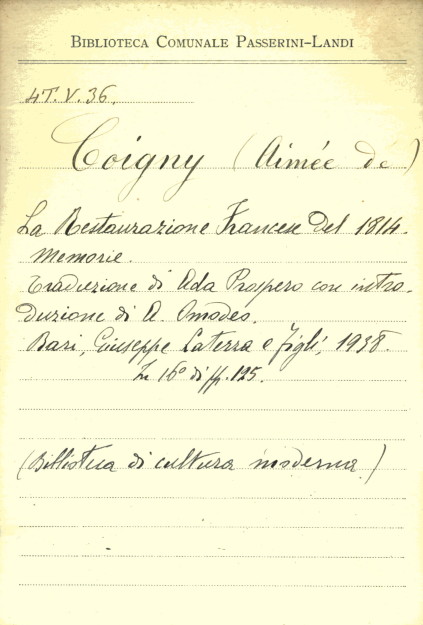 BIBLIOTECA COMUNALE PASSERINI-LANDI
4T.V.36.
Coigny (Aimée de)
La Restaurazione Francese del 1814.
Memorie.
Traduzione di Ada Prospero con intro-
duzione di A. Omodeo.
Bari, Giuseppe Laterza e figli, 1938.
In 16° di pp. 195.
(Biblioteca di cultura moderna)